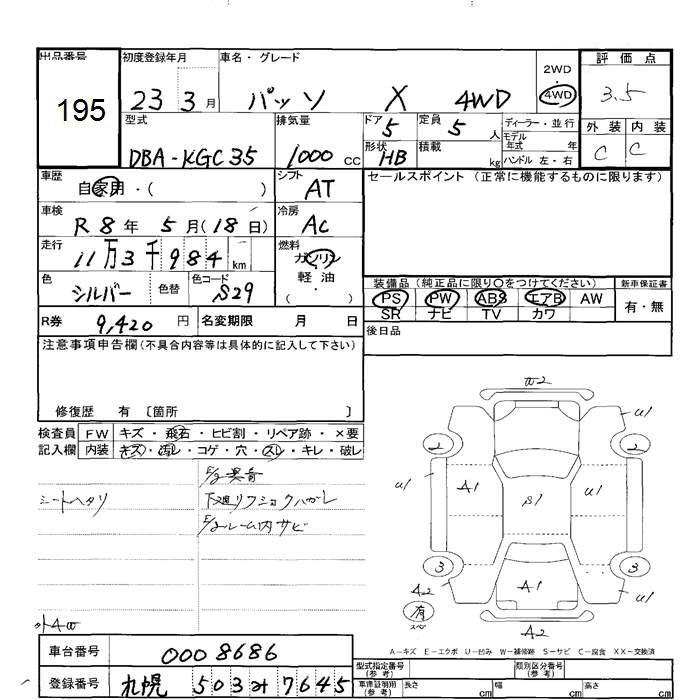 出品番号 195
初度登録年月 23 3月
車名・グレード パッソ X 4WD
2WD
4WD
評価点 3.5
外装 内装
C C
型式 DBA-KGC35
排気量 1000 cc
ドア 5
定員 5 人
形状 HB
積載 kg
ディーラー・並行
モデル年式 年
ハンドル 左・右
車歴 自家用・( )
シフト AT
セールスポイント (正常に機能するものに限ります)
車検 R8年 5月(18日)
冷房 AC
走行 11万3千984 km
燃料 ガソリン
軽油
( )
色 シルバー 色替
色コード S29
装備品 (純正品に限り〇をつけてください)
新車保証書
PS PW ABS エアB AW
SR ナビ TV カワ
有・無
R券 9,420 円
名変期限 月 日
後日品
注意事項申告欄(不具合内容等は具体的に記入して下さい)
修復歴 有 〔箇所 〕
検査員記入欄
FW キズ・飛石・ヒビ割・リペア跡・×要
内装 キズ・汚レ・コゲ・穴・スレ・キレ・破レ
E/g異音
シートヘタリ
下廻りフショクハガレ
E/gルーム内サビ
外4W
W2
U1
2
2
U1
A1
S1
U1
U1
3
3
A1
A2
有
スペ
U1
A2
A-キズ E-エクボ U-凹み W-補修跡 S-サビ C-腐食 XX-交換済
車台番号 0008686
登録番号 札幌 503 7645
型式指定番号(参考)
類別区分番号(参考)
車庫証明用(参考) 長さ cm 幅 cm 高さ cm